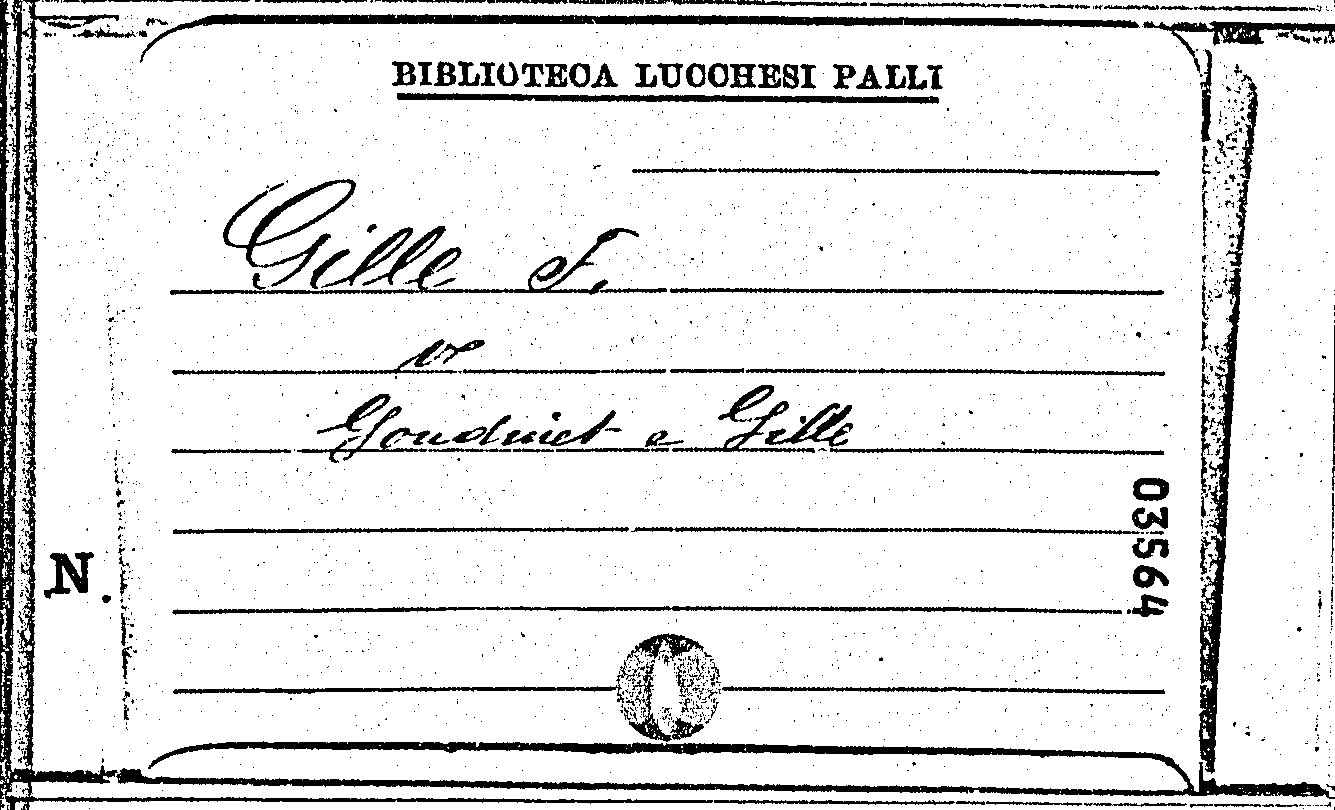 BIBLIOTECA LUCCHESI PALLI
Gille F.
v
Gondinet e Gille
03564
N.